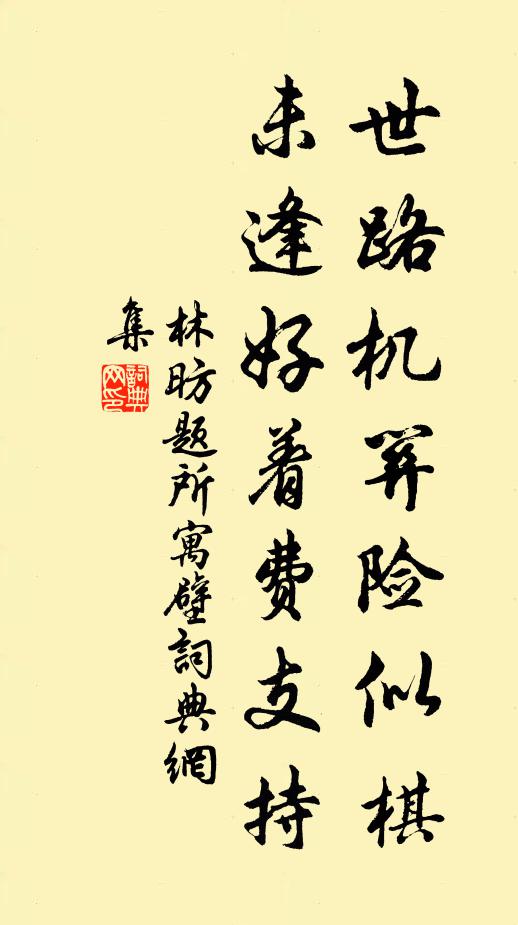 世路机穽险似棋
未逢好着费支持
林昉题所寓壁詞典網
集
詞典网印